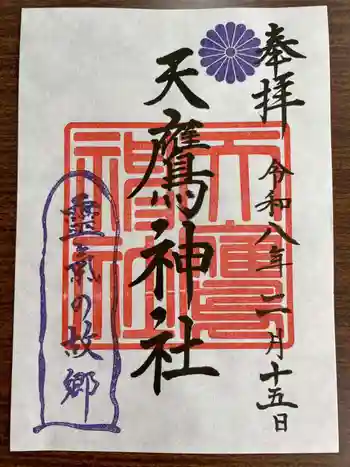 奉拝
令和八年二月十五日
天鷹神社
天鷹神社
靈氣の故郷